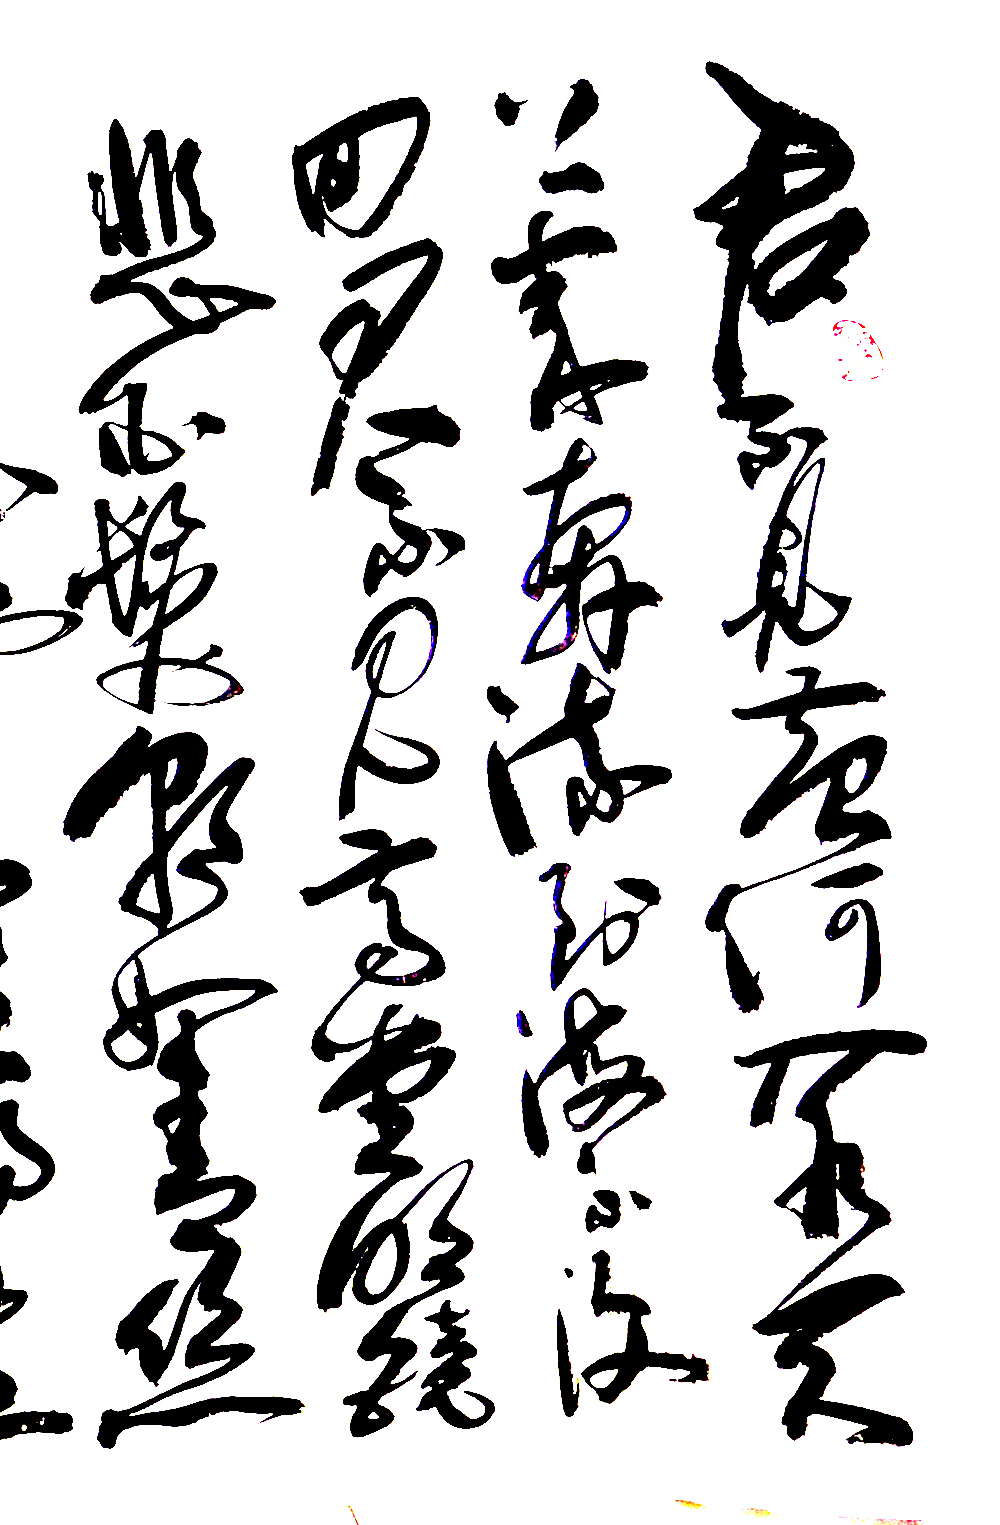 君不見黃河之水天
上來奔流到海不復
回君不見高堂明鏡
悲白髮朝如青絲